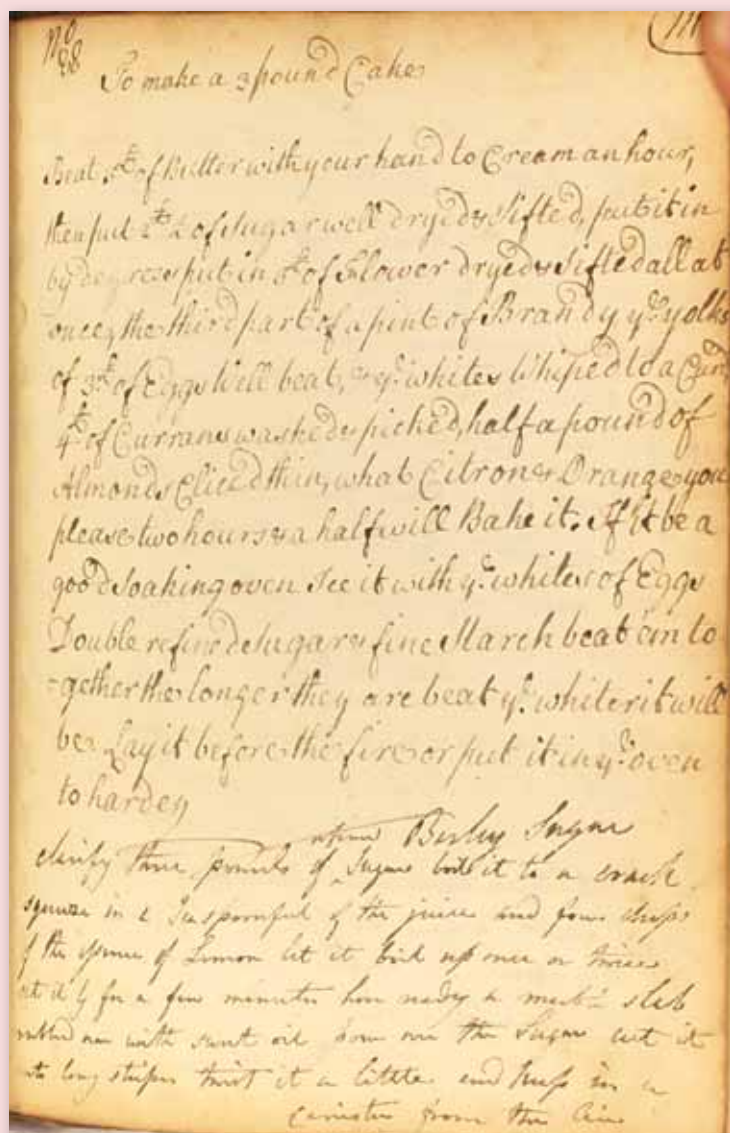 No
88
To make a 3 pound Cake
Beat 3lb of Butter with your hand to Cream an hour,
then put 2lb ½ of Sugar well dryed & Sifted, put it in
by degrees put in 3lb of Flower dryed & Sifted all at
once, the third part of a pint of Brandy ye yolks
of 3lb of Eggs Well beat, & ye whites Whiped to a Curd
4lb of Currans washed & picked, half a pound of
Almonds Sliced thin, what Citron & Orange you
please two hours & a half will Bake it. If It be a
good Soaking oven Ice it with ye whites of Eggs
Double refined Sugar & fine Starch beat 'em to
-gether the longer they are beat ye whiter it will
be Lay it before the fire or put it in ye oven
to harden
Barley Sugar
clarify three pounds of Sugar boil it to a crack
squeeze in a Teaspoonful of the juice and four drops
of the essence of Lemon let it boil up once or twice
set it by for a few minutes have ready a marble slab
rubbed over with sweet oil pour over the Sugar cut it
into long stripes twist it a little and keep in a
canister from the Air